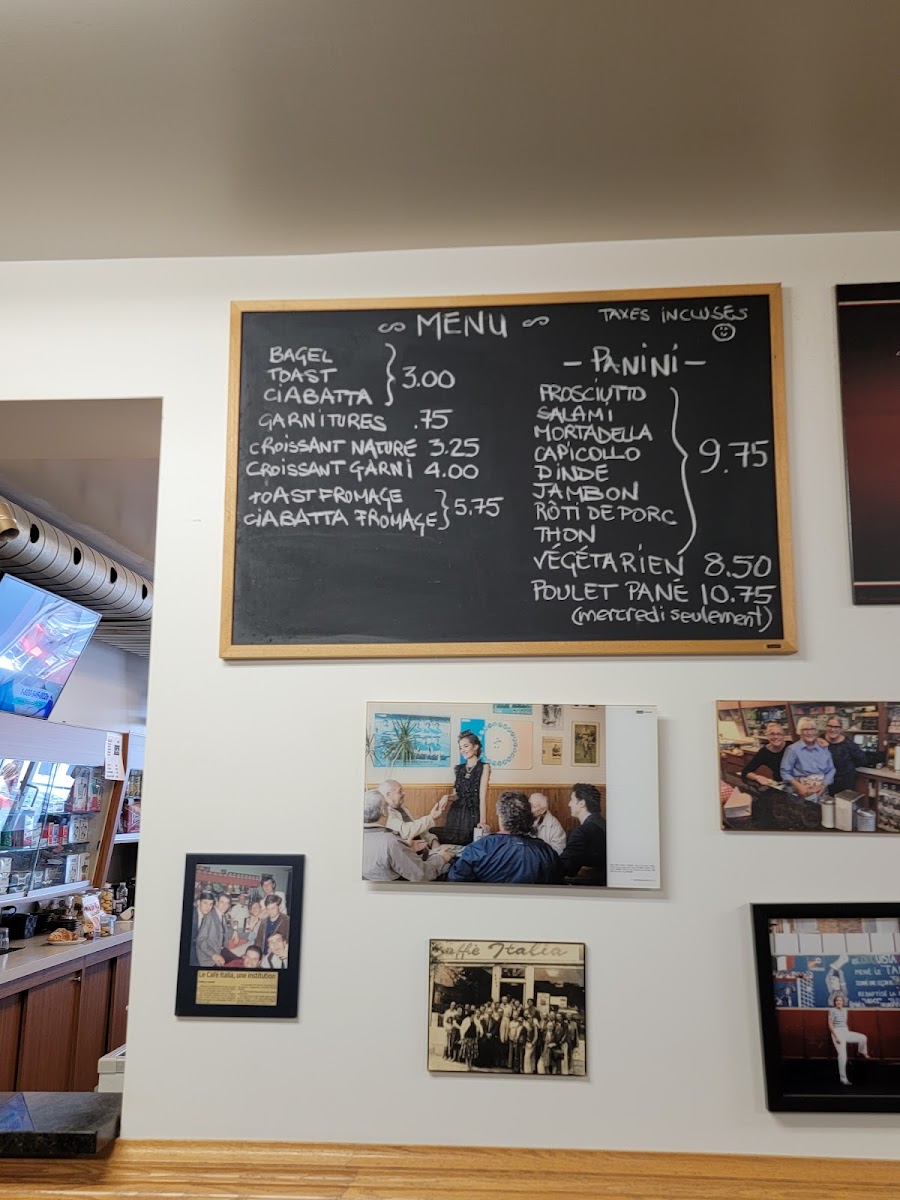 MENU
TAXES INCLUSES
BAGEL
TOAST
CIABATTA
3.00
GARNITURES .75
CROISSANT NATURE 3.25
CROISSANT GARNI 4.00
TOAST FROMAGE
CIABATTA FROMAGE
5.75
- PANINI -
PROSCIUTTO
SALAMI
MORTADELLA
CAPICOLLO
DINDE
JAMBON
RÔTI DE PORC
THON
9.75
VÉGÉTARIEN 8.50
POULET PANÉ 10.75
(mercredi seulement)
Le Café Italia, une institution
Caffè Italia